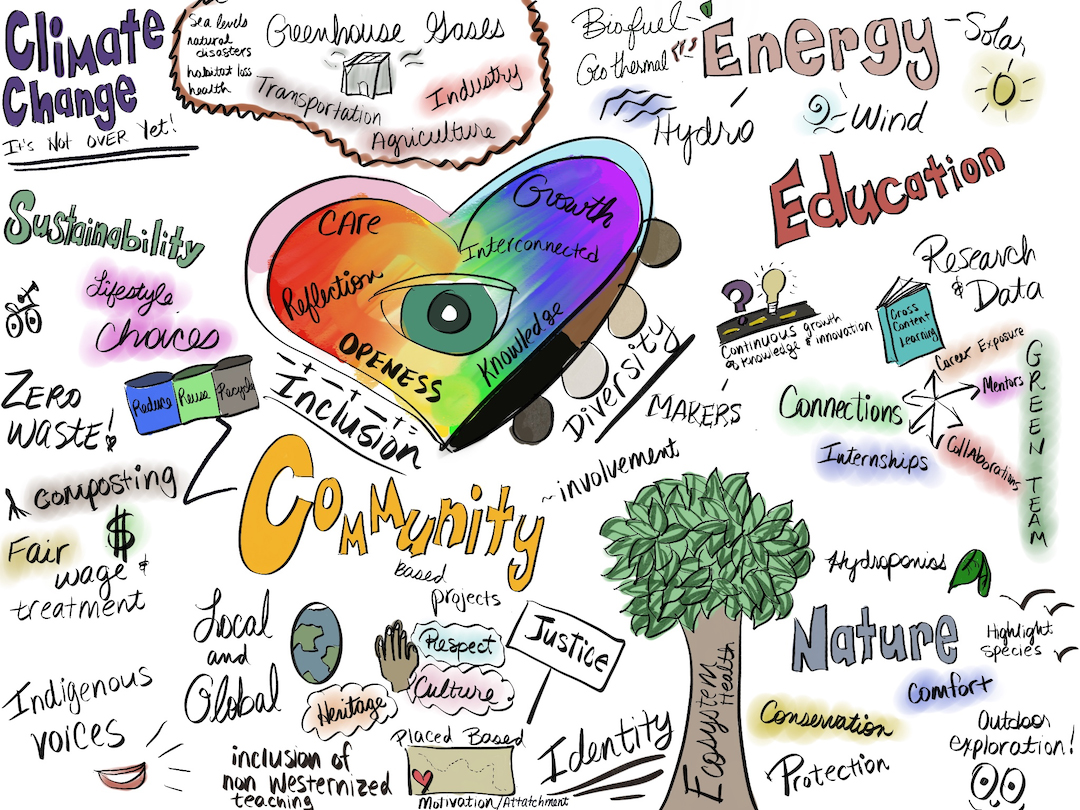 Climate
Change
It's Not OVER Yet!
Sea levels
natural
disasters
habitat loss
health
Greenhouse Gases
Transportation
Industry
Agriculture
Biofuel
Geothermal
Energy
Solar
Hydro
Wind
Sustainability
Lifestyle
Choices
Zero
Waste!
Reduce
Reuse
Recycle
composting
$
Fair
wage &
treatment
CARe
Reflection
OPENESS
Growth
Interconnected
Knowledge
Inclusion
Diversity
Education
Research
& Data
?
Continuous growth
of knowledge & innovation
MAKERS
Cross
Content
Learning
Career Exposure
Mentors
Connections
Internships
Collaborations
GREEN TEAM
Community
~involvement
Based
projects
Local
and
Global
Respect
Culture
Heritage
Justice
Placed Based
Motivation/Attatchment
Identity
Indigenous
voices
inclusion of
non Westernized
teaching
Ecosystem
Health
Hydroponics
Nature
Highlight
Species
Comfort
Conservation
Protection
Outdoor
exploration!